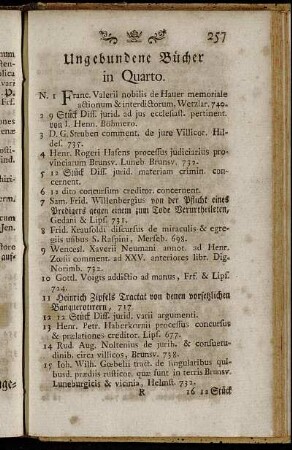 257
Ungebundene Bücher
in Quarto.
N. 1 Franc. Valerii nobilis de Hauer memoriale
actionum & interdictorum, Wetzlar. 740.
2 9 Stück Diss. jurid. ad jus ecclesiast. pertinent.
von I. Henn. Böhmero.
3 D. G. Struben comment. de jure Villicor. Hil-
des. 735.
4 Henr. Rogeri Hasens processus judiciarius pro-
vinciarum Brunsv. Luneb Brunsv. 732.
5 12 Stück Diss. jurid. materiam crimin. con-
cernent.
6 12 dito concursum creditor. concernent.
7 Sam. Frid. Willenbergius von der Pflicht eines
Predigers gegen einem zum Tode Verurtheileten,
Gedani & Lips. 731.
8 Frid. Krausoldi discursus de miraculis & egre-
giis usibus S. Raspini, Merseb. 698.
9 Wencesl. Xaverii Neumani annot. ad Henr.
Zœsii comment. ad XXV. anteriores libr. Dig.
Norimb. 732.
10 Gottl. Voigts addictio ad manus, Frf. & Lips.
724.
11 Heinrich Zipfels Tractat von denen vorsetzlichen
Banquerotirern, 717.
12 12 Stück Diss. jurid. varii argumenti.
13 Henr. Petr. Haberkornii processus concursus
& prælationes creditor. Lips. 677.
14 Rud. Aug. Noltenius de jurib. & consuetu-
dinib. circa villicos, Brunsv. 738.
15 Ioh. Wilh. Gœbelii tract. de singularibus qui-
busd. prædiis rusticor. quæ sunt in terris Brunsv.
Luneburgicis & vicinia, Helmst. 732.
R 16 12 Stück